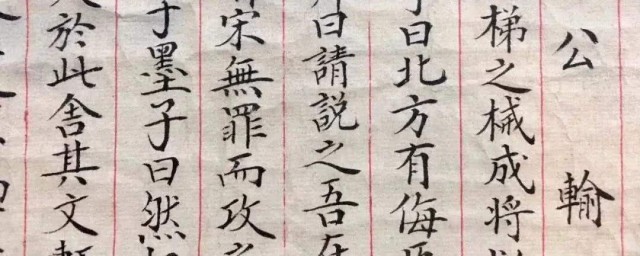 公輸
梯之械成將
曰北方有侮
曰請說之吾
宋無罪而攻之
子墨子曰然
於此舍其文